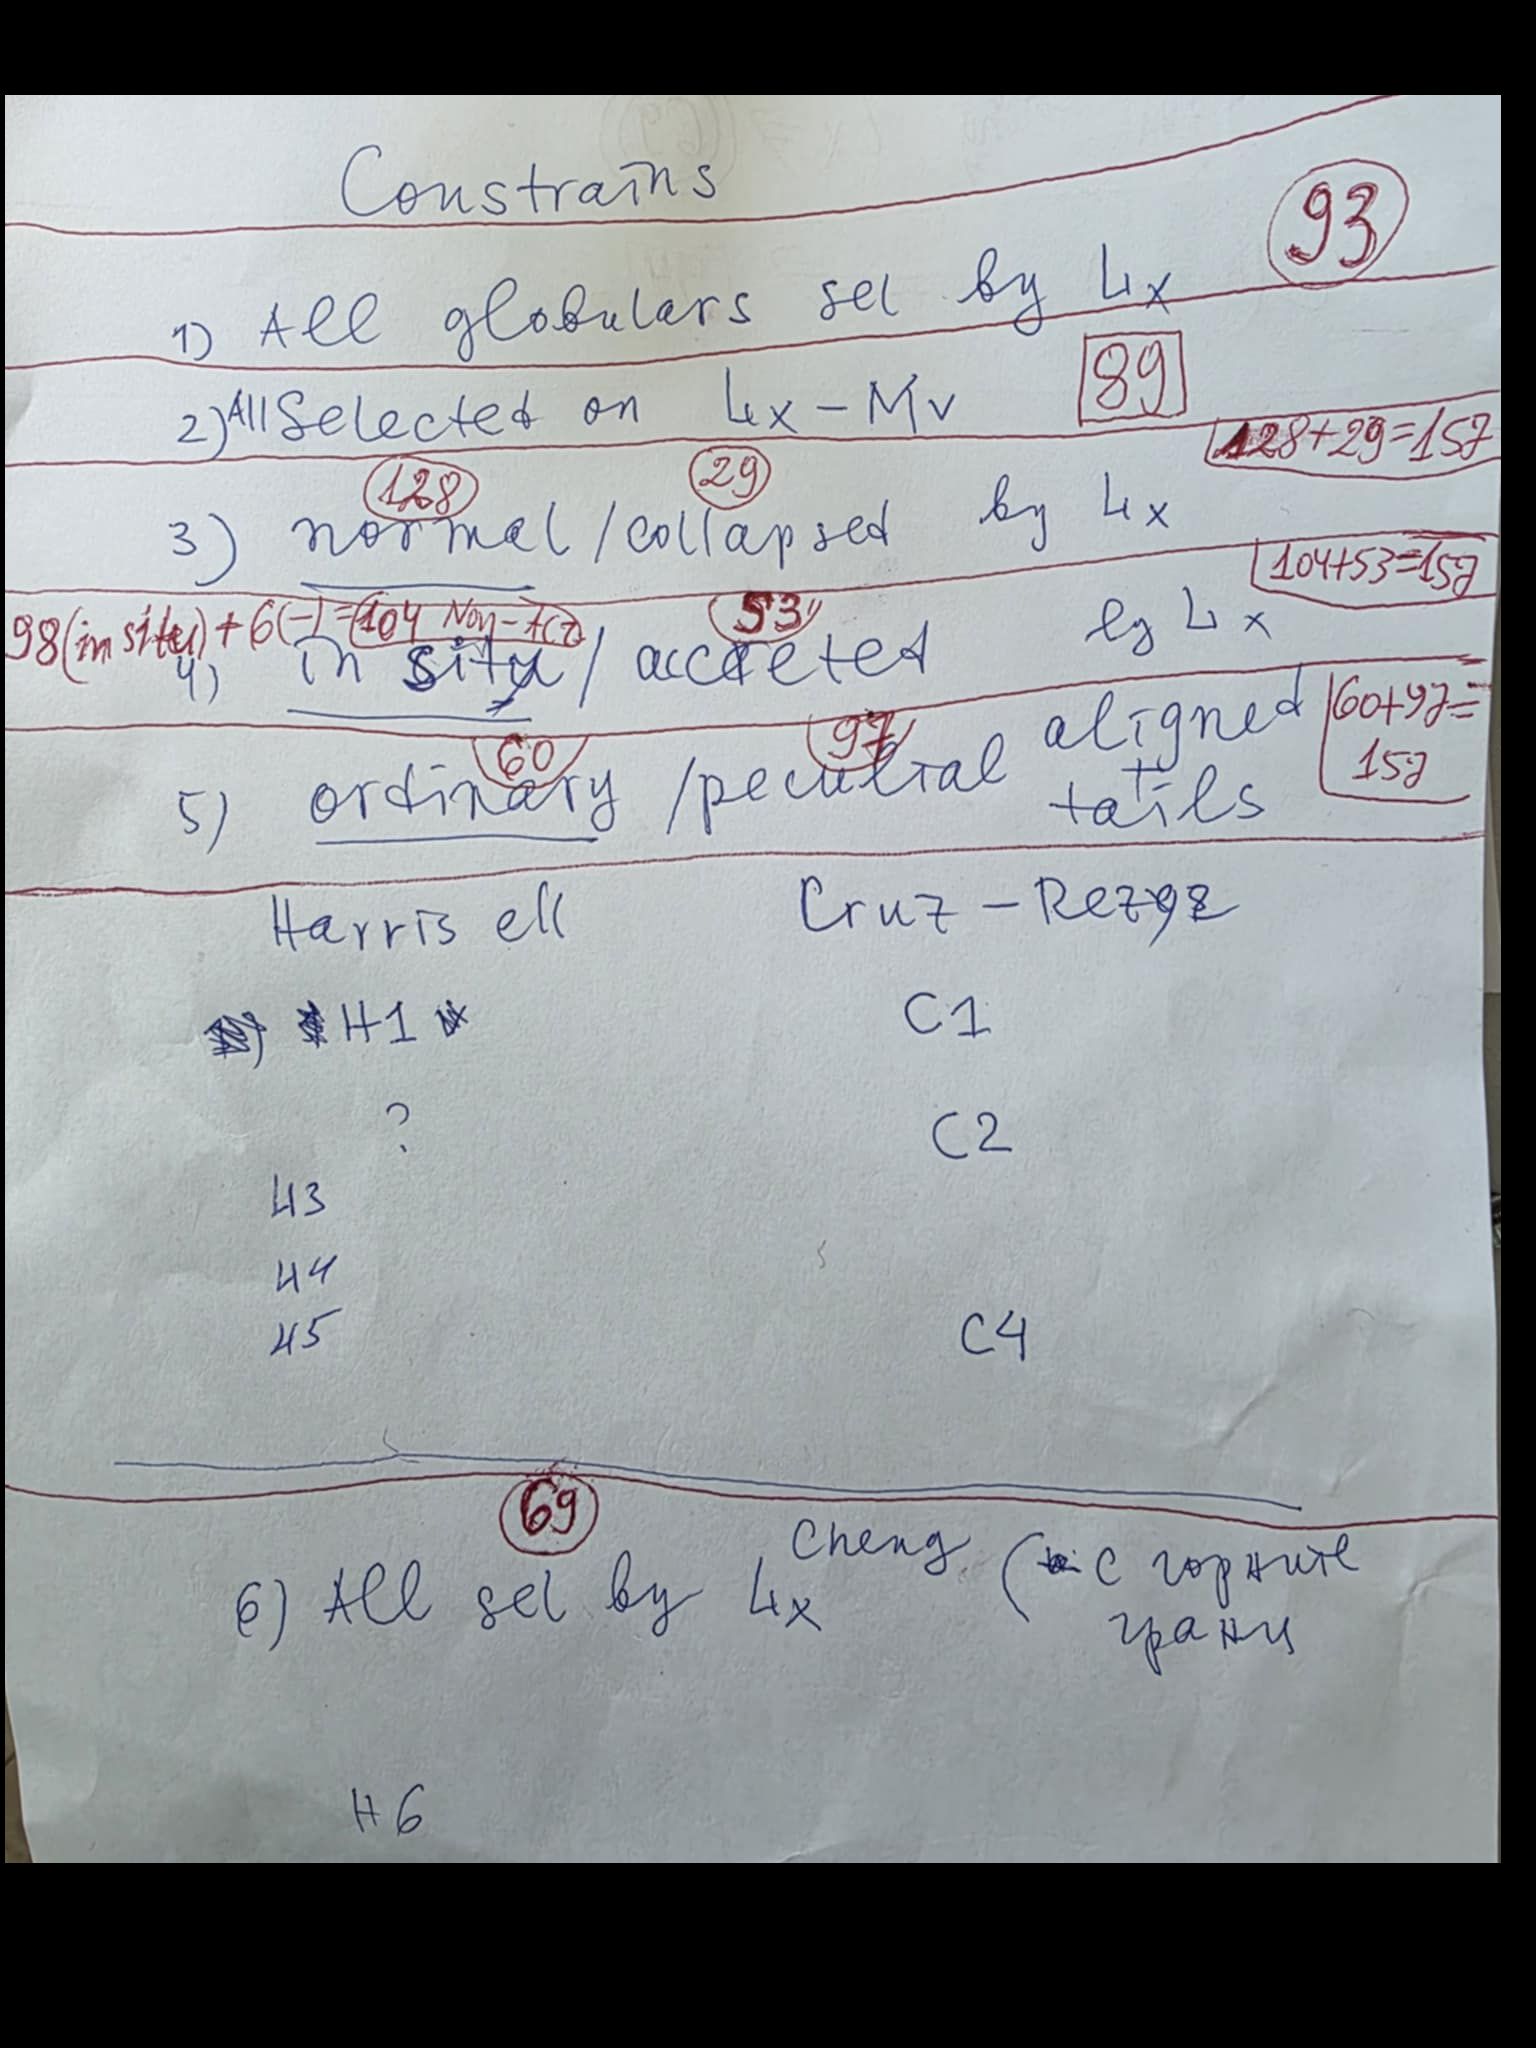 Constrains
93
1) All globulars sel by Lx
2) All Selected on Lx - Mv 89
128 29 128+29=157
3) normal / collapsed by Lx
98 (in situ) + 6 (-) = 104 Non- 53 104+53=157
4) in situ / accreted by Lx
60 97 60+97=157
5) ordinary / peculiar aligned tails
Harris ell Cruz - Reyes
H1 C1
? C2
H3
H4
H5 C4
69
6) All sel by Lx Cheng (с горните
границ
H6